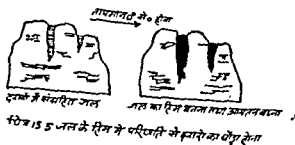 तापमान 0° से० होना
दरारों में संचरित जल
जल का हिम बनना तथा आयतन बढ़ना
चित्र 15.5 जल के हिम में परिणति से दरारों का चौड़ा होना